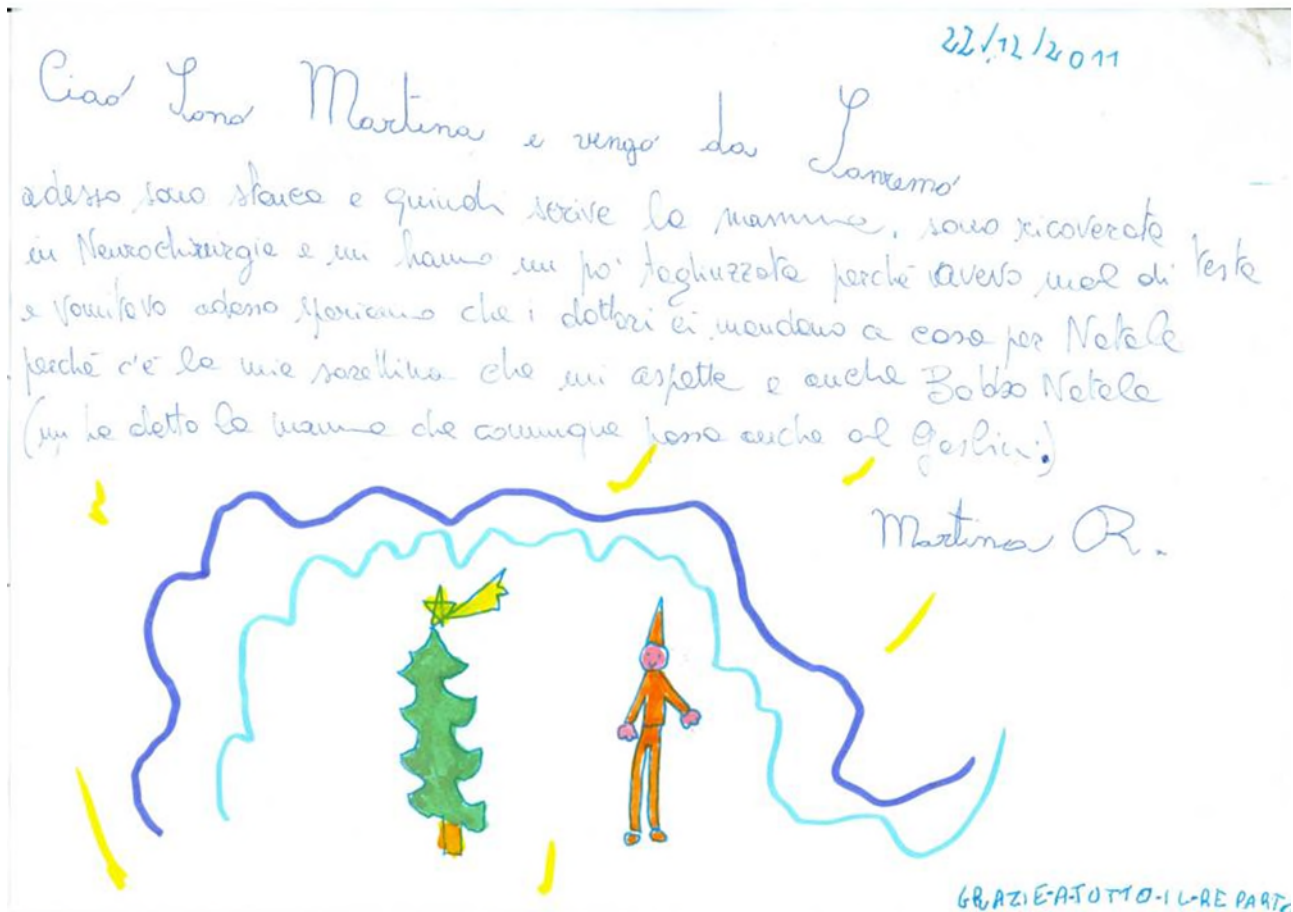 22/12/2011
Ciao Sono Martina e vengo da Sanremo
adesso sono stanca e quindi scrive la mamma, sono ricoverata
in Neurochirurgia e mi hanno un po' tagliuzzata perché avevo mal di testa
e vomitavo adesso speriamo che i dottori ci mandano a casa per Natale
perché c'è la mia sorellina che mi aspetta e anche Babbo Natale
(mi ha detto la mamma che comunque passa anche al Gaslini:)
Martina R.
GRAZIE-A-TUTTO-IL-REPARTO